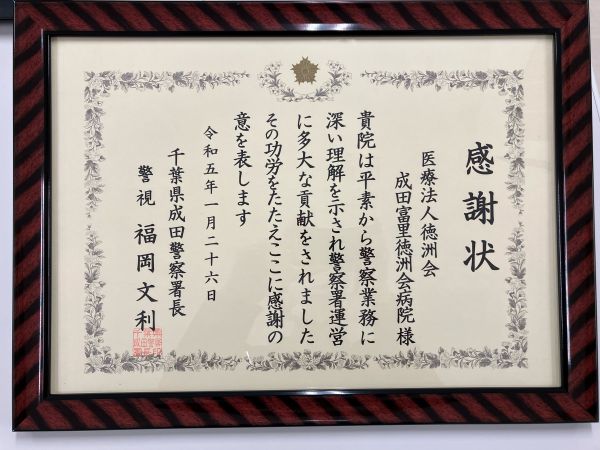 感謝状
医療法人徳洲会
成田富里徳洲会病院様
貴院は平素から警察業務に
深い理解を示され警察署運営
に多大な貢献をされました
その功労をたたえここに感謝の
意を表します
令和五年一月二十六日
千葉県成田警察署長
警視 福岡文利